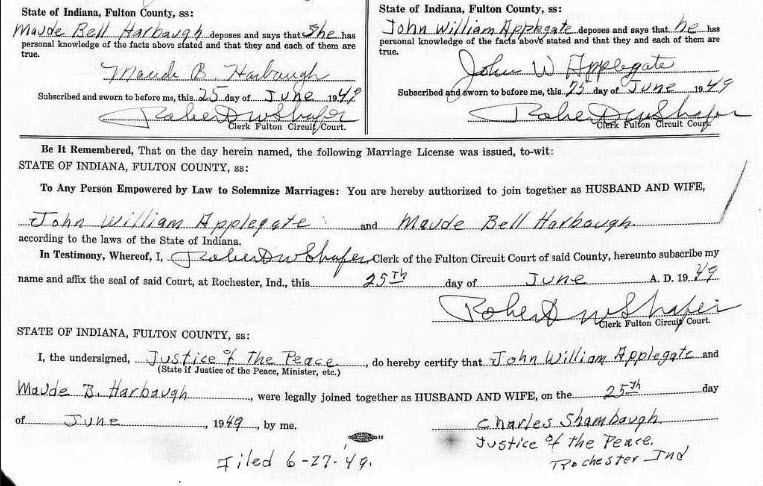 State of Indiana, Fulton County, ss:
Maude Bell Harbaugh deposes and says that she has
personal knowledge of the facts above stated and that they and each of them are
true.
Maude B. Harbaugh
Subscribed and sworn to before me, this 25 day of June 1949
Robert W Shafer
Clerk Fulton Circuit Court.
State of Indiana, Fulton County, ss:
John William Applegate deposes and says that he has
personal knowledge of the facts above stated and that they and each of them are
true.
John W Applegate
Subscribed and sworn to before me, this 25 day of June 1949
Robert W Shafer
Clerk Fulton Circuit Court.
Be It Remembered, That on the day herein named, the following Marriage License was issued, to-wit:
STATE OF INDIANA, FULTON COUNTY, ss:
To Any Person Empowered by Law to Solemnize Marriages: You are hereby authorized to join together as HUSBAND AND WIFE,
John William Applegate and Maude Bell Harbaugh
according to the laws of the State of Indiana.
In Testimony, Whereof, I, Robert W Shafer Clerk of the Fulton Circuit Court of said County, hereunto subscribe my
name and affix the seal of said Court, at Rochester, Ind., this 25Th day of June A. D. 1949
Robert W Shafer
Clerk Fulton Circuit Court.
STATE OF INDIANA, FULTON COUNTY, ss:
I, the undersigned, Justice of The Peace, do hereby certify that John William Applegate and
(State if Justice of the Peace, Minister, etc.)
Maude B. Harbaugh, were legally joined together as HUSBAND AND WIFE, on the 25th day
of June, 1949, by me.
Charles Shambaugh.
Justice of the Peace.
Rochester Ind
Filed 6-27-49.